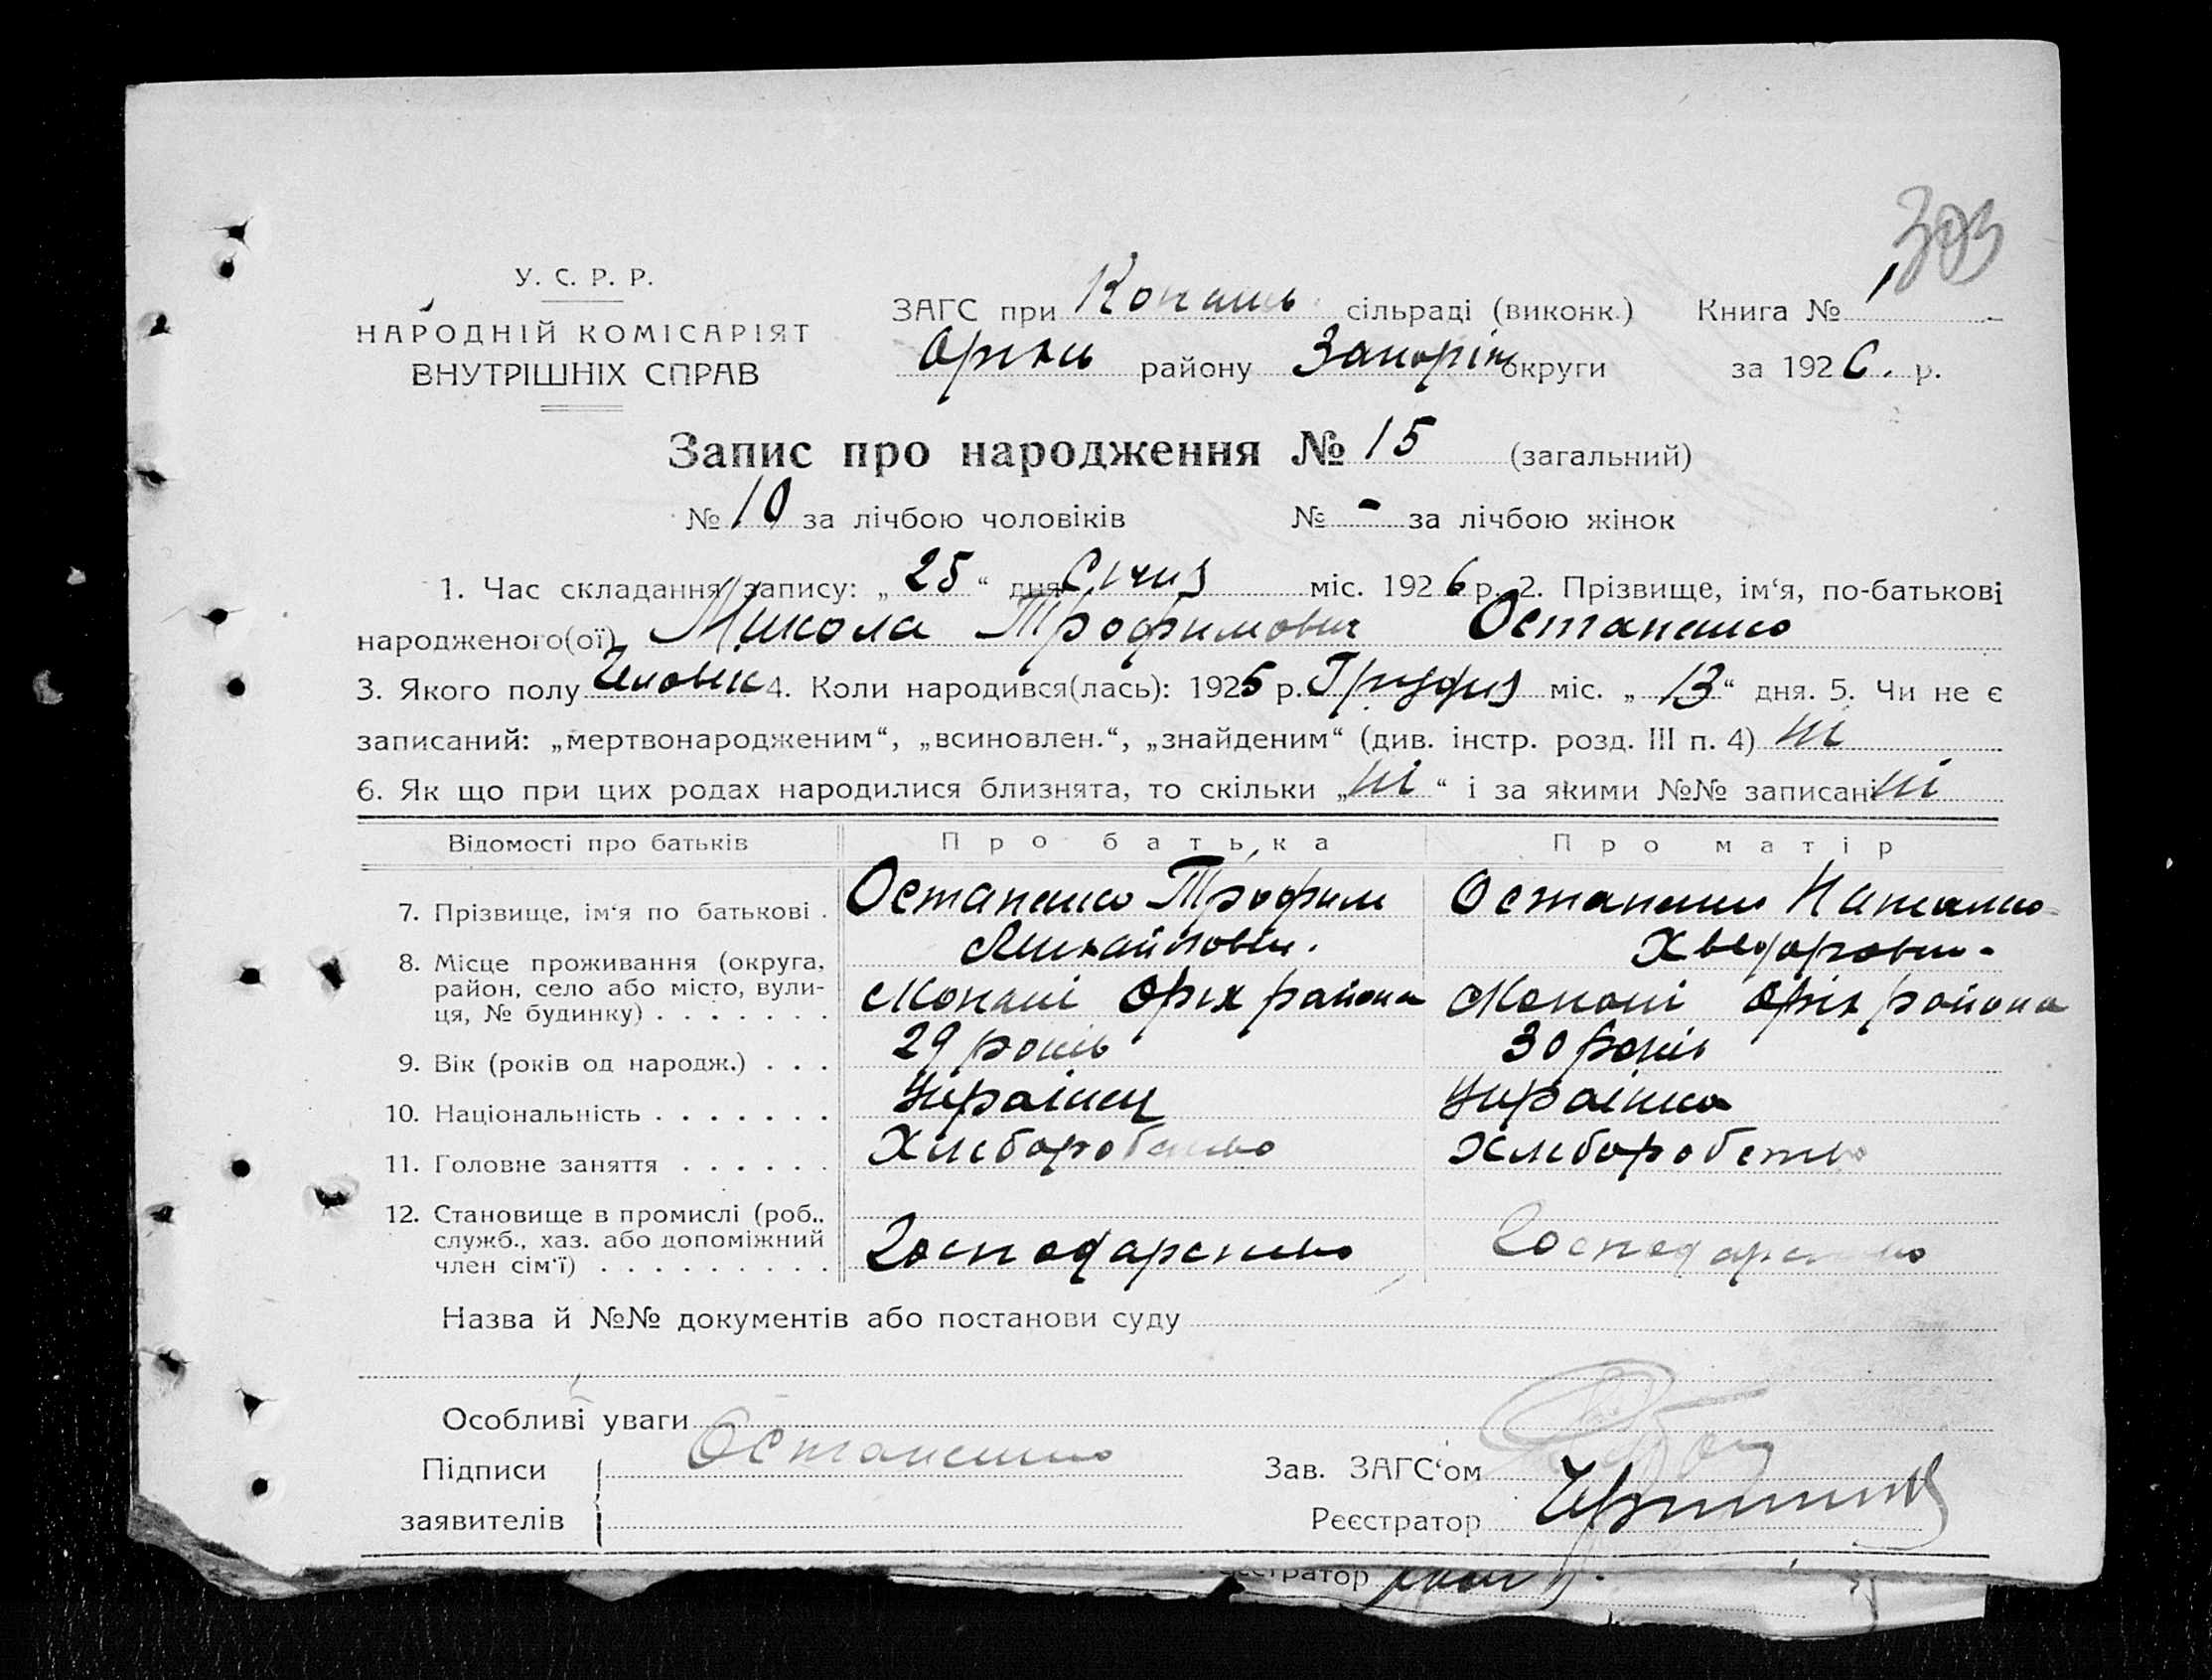 303
У. С. Р. Р.
НАРОДНІЙ КОМІСАРІЯТ
ВНУТРІШНІХ СПРАВ
ЗАГС при Копань сільраді (виконк.) Книга № 1
Оріхів району Запоріж округи за 1926. р.
Запис про народження № 15 (загальний)
№ 10 за лічбою чоловіків № - за лічбою жінок
1. Час складання запису: „25“ дня Січня міс. 1926 р. 2. Прізвище, ім‘я, по-батькові
народженого(ої) Микола Трофимович Остапенко
3. Якого полу Чловік 4. Коли народився(лась): 1925 р. Грудня міс. „13“ дня. 5. Чи не є
записаний: „мертвонародженим“, „всиновлен.“, „знайденим“ (див. інстр. розд. III п. 4) ні
6. Як що при цих родах народилися близнята, то скільки „ні“ і за якими №№ записані ні
Відомості про батьків Про батька Про матір
7. Прізвище, ім‘я по батькові . Остапенко Трофим Остапенко Наталко
Михайлович. Хведоровн-
8. Місце проживання (округа,
район, село або місто, вули-
ця, № будинку) . . . . . . . Копані Оріх района Копані Оріх района
9. Вік (років од народж.) . . . 29 років 30 років
10. Національність . . . . . . . Українец Українка
11. Головне заняття . . . . . . Хліборобство Хліборобство
12. Становище в промислі (роб.,
служб., хаз. або допоміжний
член сім‘ї) . . . . . . . . . Господарство Господарство
Назва й №№ документів або постанови суду
Особливі уваги
Підписи Остапенко Зав. ЗАГС‘ом
заявителів Реєстратор
еєстратор